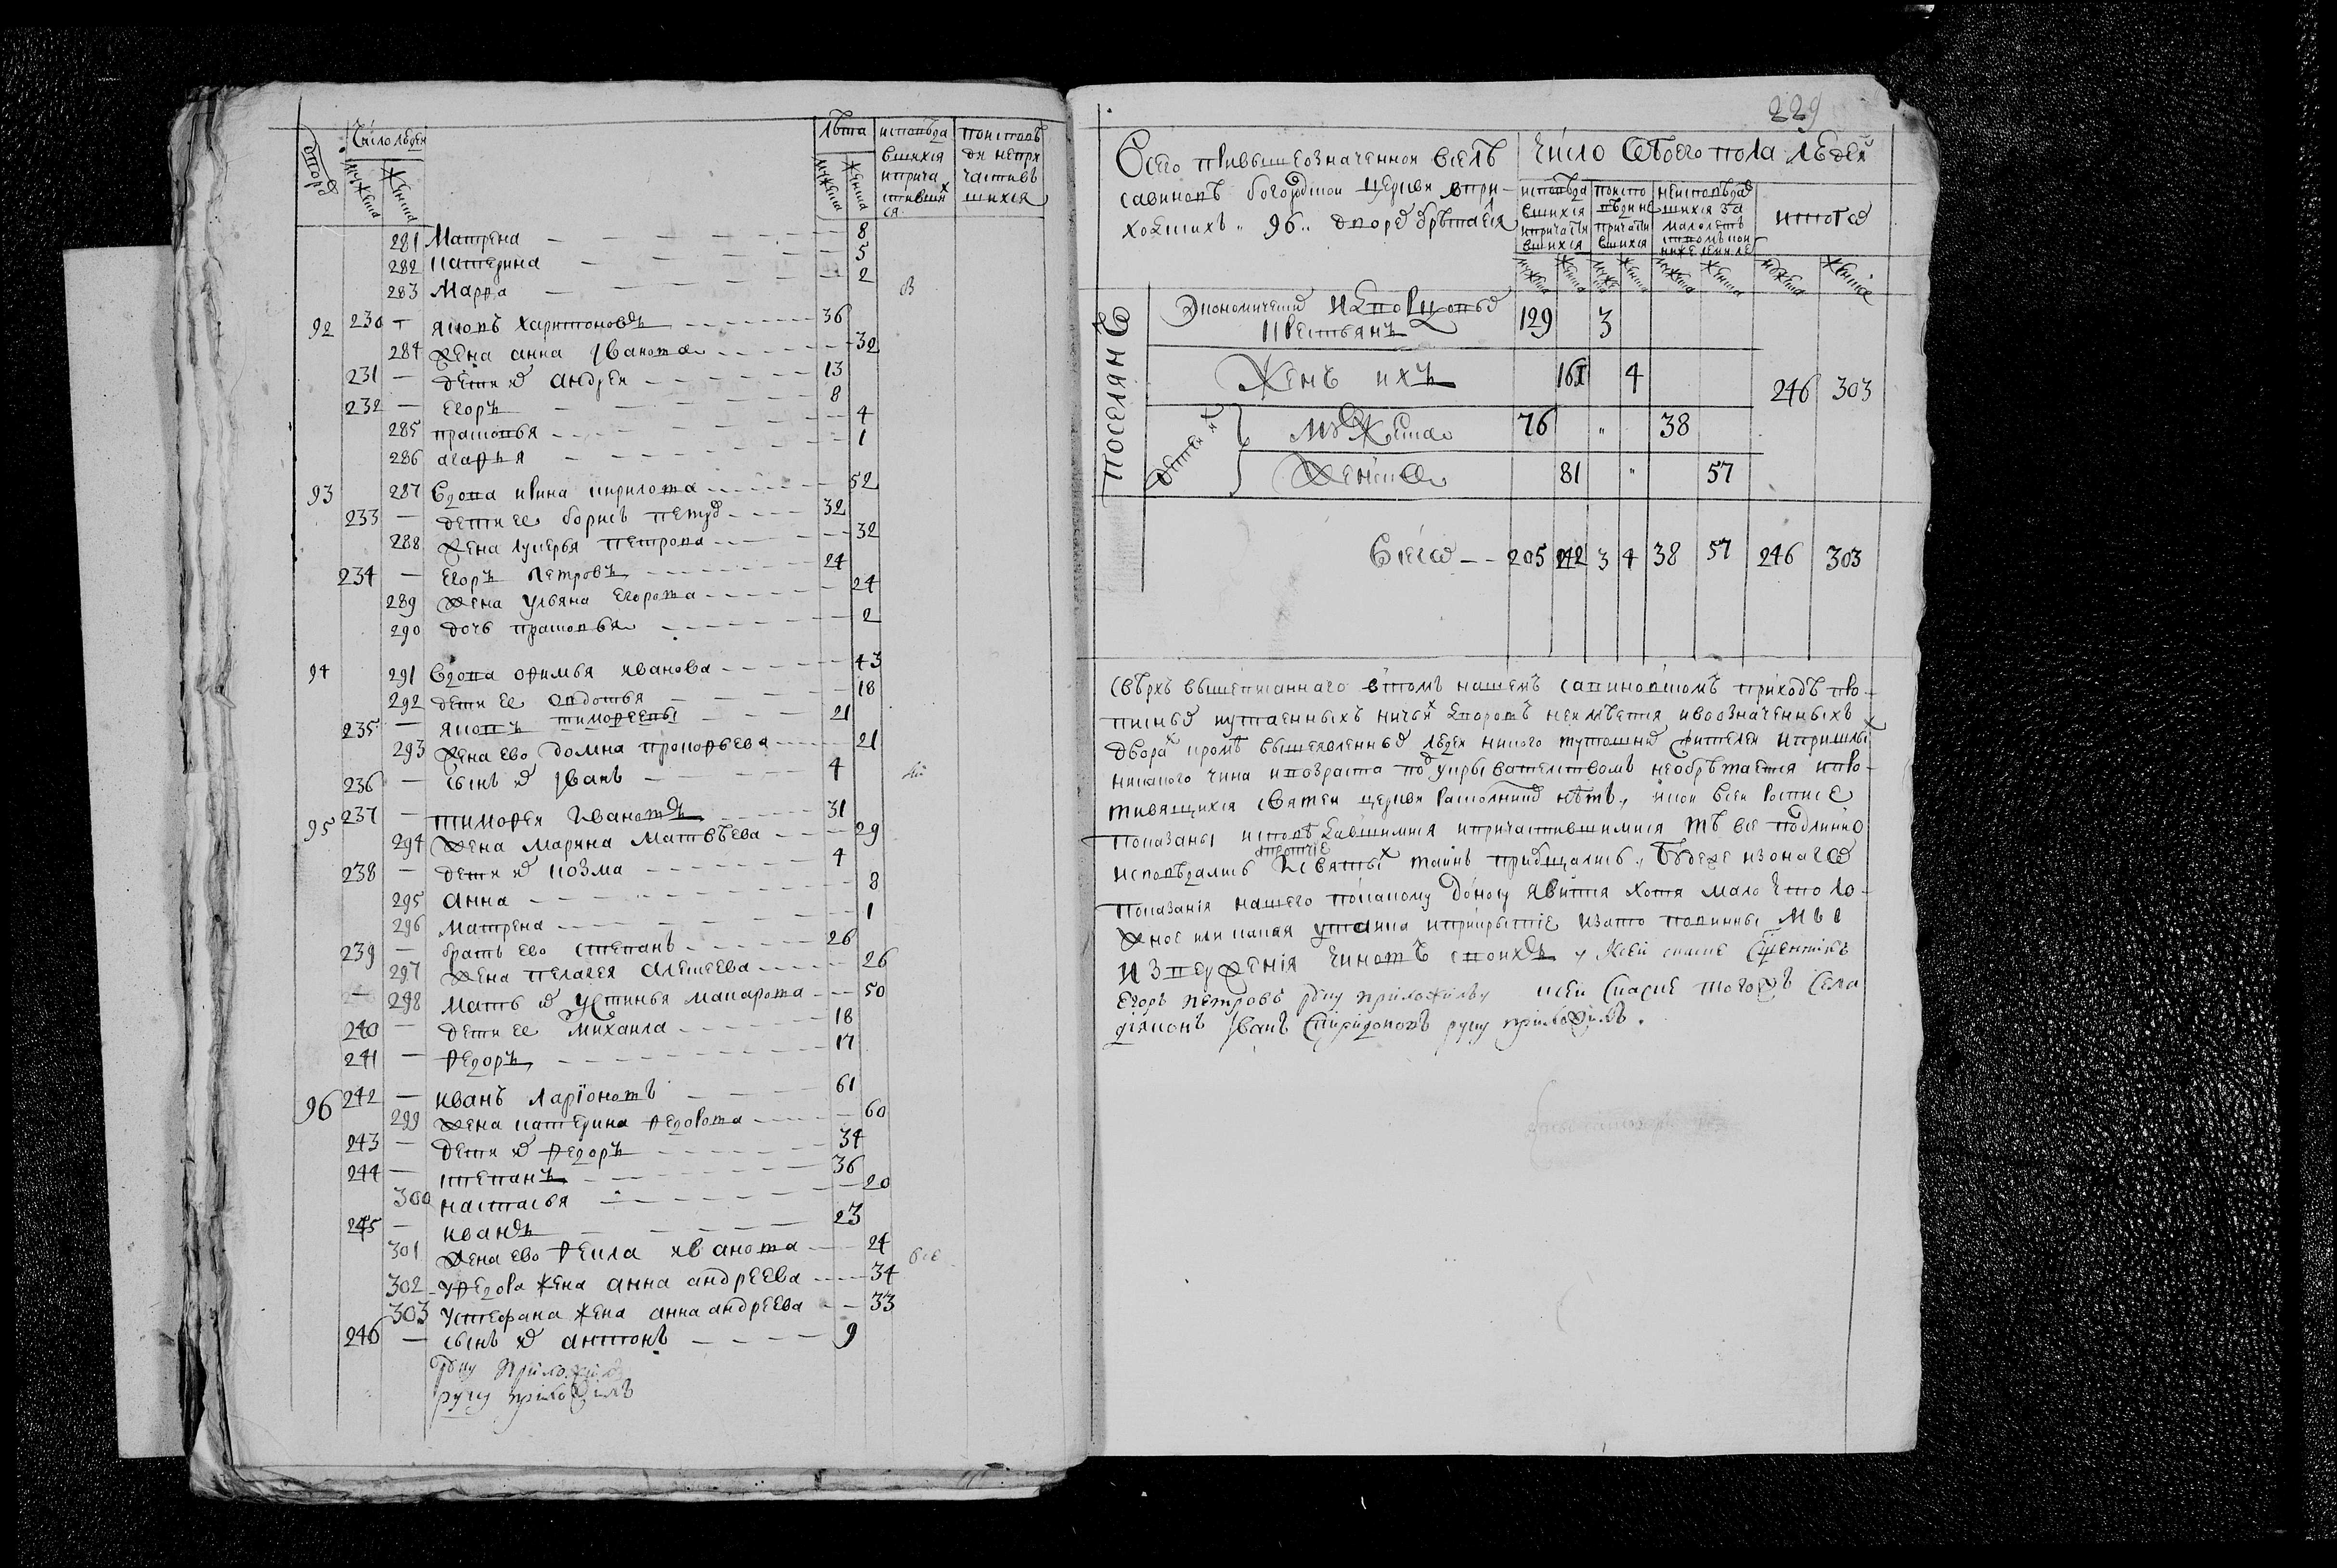 дворо
Число людеи
мужеска
женска
лѣта
мужеска
женска
исповѣда
вшихся
и прича
стивших
ся
по исповѣ
ди непри
частивъ
шихся
281 Матрена 8
282 катерина 5
283 Марѳа 2
92 230 — яковъ харитоновъ 36
284 жена анна Iванова 32
231 — дети ево андреи 13
232 — егоръ 8
285 прасковья 4
286 агаѳья 1
93 287 вдова ирина кирилова 52
233 — дети ее борисъ петровъ 32
288 жена лукерья петрова 32
234 — егоръ петровъ 24
289 жена ульяна егорова 24
290 дочь прасковья 2
94 291 вдова офимья иванова 43
292 дети ее авдотья 18
235 — яковъ тимофеевъ 21
293 жена ево домна прокофьева 21
236 — сынъ ево Iванъ 4
95 237 — тимоѳеи Ивановъ 31
294 жена Марина Матвѣева 29
238 — дети ево козма 4
295 анна 8
296 матрена 1
239 — братъ ево степанъ 26
297 жена пелагея алексеева 26
298 мать ево устинья макарова 50
240 — дети ее михаила 18
241 — ѳедоръ 17
96 242 — иванъ ларіоновъ 61
299 жена катерина ѳедорова 60
243 — дети ево ѳедоръ 34
244 — степанъ 36
300 настасья 20
245 — иванъ 23
301 жена ево ѳекла иванова 24
302 у ѳедора жена анна андреева 34
303 у стефана жена анна андреева 33
246 — сынъ ево антонъ 9
руку приложилъ
руку приложилъ
229
Всего при вышеозначенной в селѣ
савиновѣ богородской церкви в при-
ходѣ ихъ „ 96 „ дворовъ обрѣтается
число обоего пола людеи
исповѣда
вшихся
и причасти
вшихся
по испо
вѣди не
причасти
вшихся
неисповѣдав
шихся за
малолетъ
ством
итого
мужеска женска мужеска женска мужеска женска мужеска женска
поселянѣ
Экономическихъ и дворцовыхъ
крестьянъ 129 3
Женъ ихъ 161 4
246 303
Детеи ихъ
Мужеска 76 „ 38
Женска 81 „ 57
Всего -- 205 242 3 4 38 57 246 303
сверхъ вышеписаннаго в томъ нашемъ савиновскомъ приходѣ про-
писныхъ и утаенныхъ ничьихъ дворовъ не имѣется и в означенныхъ
дворахъ кромѣ вышеявленныхъ людеи никого тутошнихъ жителеи и пришлыхъ
никакого чина и возраста под укрывателствомъ не обрѣтается и про-
тивящихся святеи церкви расколниковъ нѣтъ, и кои в сеи росписе
показаны исповѣдавшимися и причастившимися тѣ все подлинно
исповѣдались и святыхъ таинъ приобщались, Буде же из онаго
показанія нашего по какому доносу явится хотя мало что ло-
жное или какая утаика и прикрытіе и за то повинны мы
изверженія чиновъ своихъ, у Сеи скаске священникъ
егоръ петровъ руку приложилъ к сеи скаске тогожъ села
діяконъ Iванъ Спиридоновъ руку приложилъ.